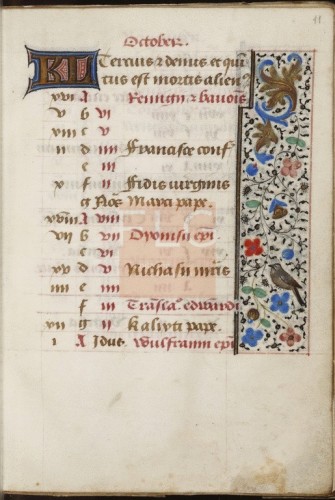 11
October.
KL Tercius & denus et qui
tus est mortis alien9
xvi A Remigii & bauonis
v b vi
xiii c v
ii d iiii Francisci conf
e iii
x f ii Fidis uirginis
g Nos Marci pape.
xviii A viii
vii b vii Dyonisii epi.
c vi
xv d v Nichasii mris
iiii e iiii
f iii Traslac. edwardi
xii g ii Kalixti pape.
i A Idus. Wulfranni epi